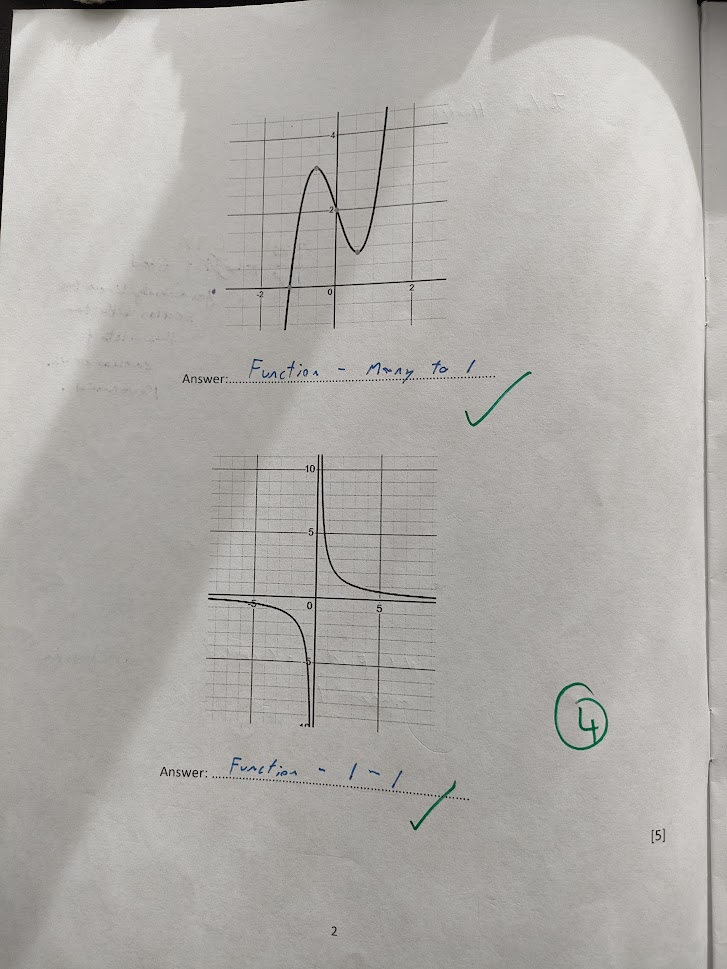 4
2
-2
0
2
Answer: Function - Many to 1
10
5
-5
0
5
-5
-10
4
Answer: Function - 1-1
[5]
2